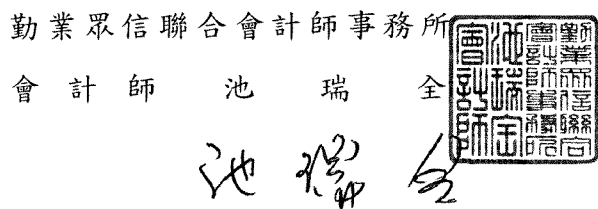 勤業眾信聯合會計師事務所
會計師 池瑞全
池瑞全
勤業眾信聯合
會計師事務所
池瑞全
會計師